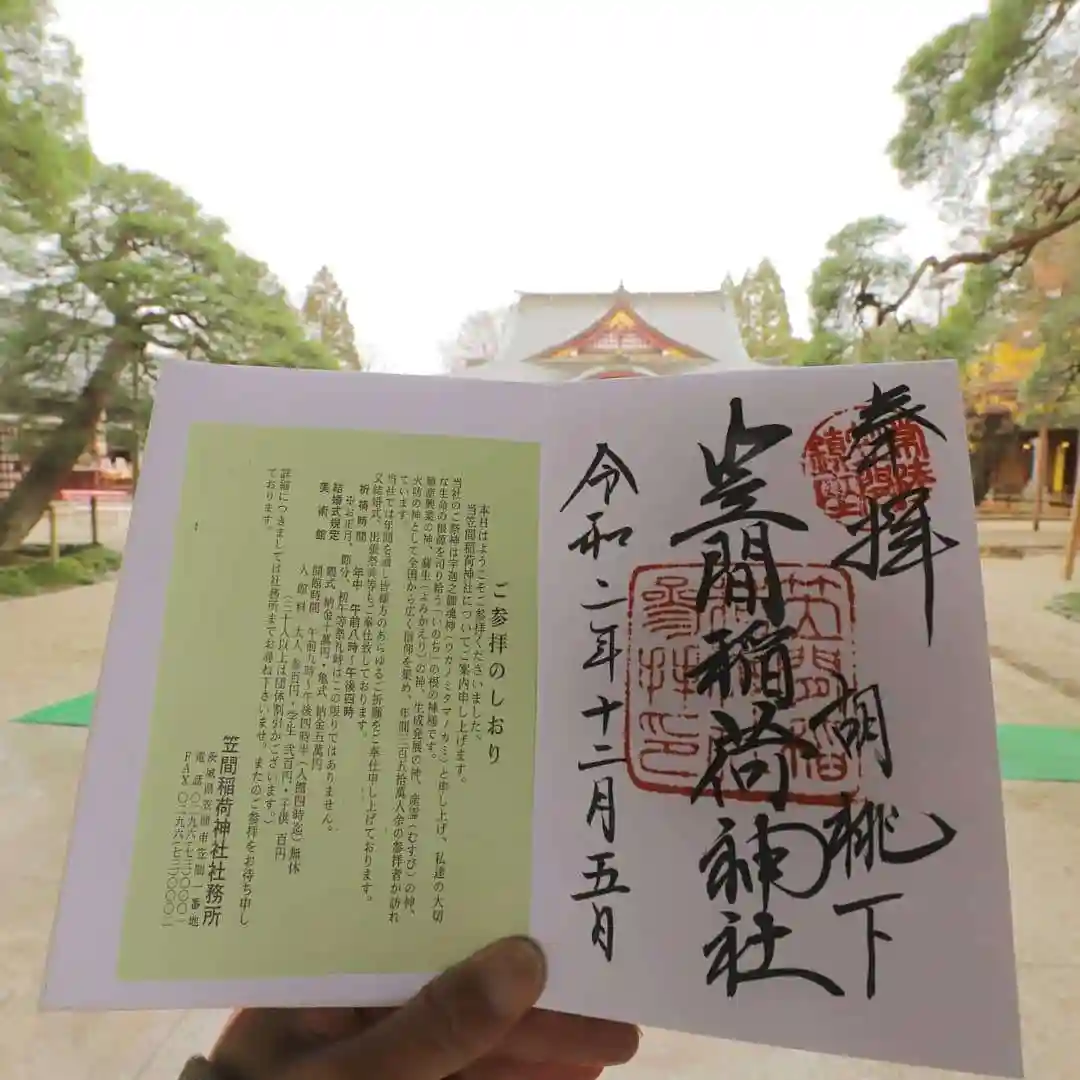 奉拝
胡桃下
笠間稲荷神社
令和二年十二月五日
笠間稲荷
参拝之印
ご参拝のしおり
本日はようこそご参拝くださいました。
当笠間稲荷神社についてご案内申し上げます。
当社のご祭神は宇迦之御魂神(ウカノミタマノカミ)と申し上げ、私達の大切
な生命の根源を司り給う「いのち」の根の神様です。
殖産興業の神、蘇生(よみがえり)の神、生成発展の神、産霊(むすび)の神、
火防の神として全国から広く信仰を集め、年間三百五拾萬人余の参拝者が訪れ
ています。
当社では年間を通し皆様方のあらゆるご祈願をご奉仕申し上げております。
又結婚式、出張祭典等もご奉仕致しております。
祈祷時間 年中 午前八時~午後四時
※お正月、節分、初午等祭礼時はこの限りではありません。
結婚式規定 鶴式 納金十萬円・亀式 納金五萬円
美術館 開館時間 午前九時~午後四時半(入館四時迄)無休
入館料 大人 参百円・学生 弐百円・子供 百円
(二十人以上は団体割引がございます。)
詳細につきましては社務所までお尋ね下さいませ。またのご参拝をお待ち申し
ております。
笠間稲荷神社社務所
茨城県笠間市笠間一番地
電話 〇二九六(七三)〇〇〇一
FAX 〇二九六(七三)〇〇〇二